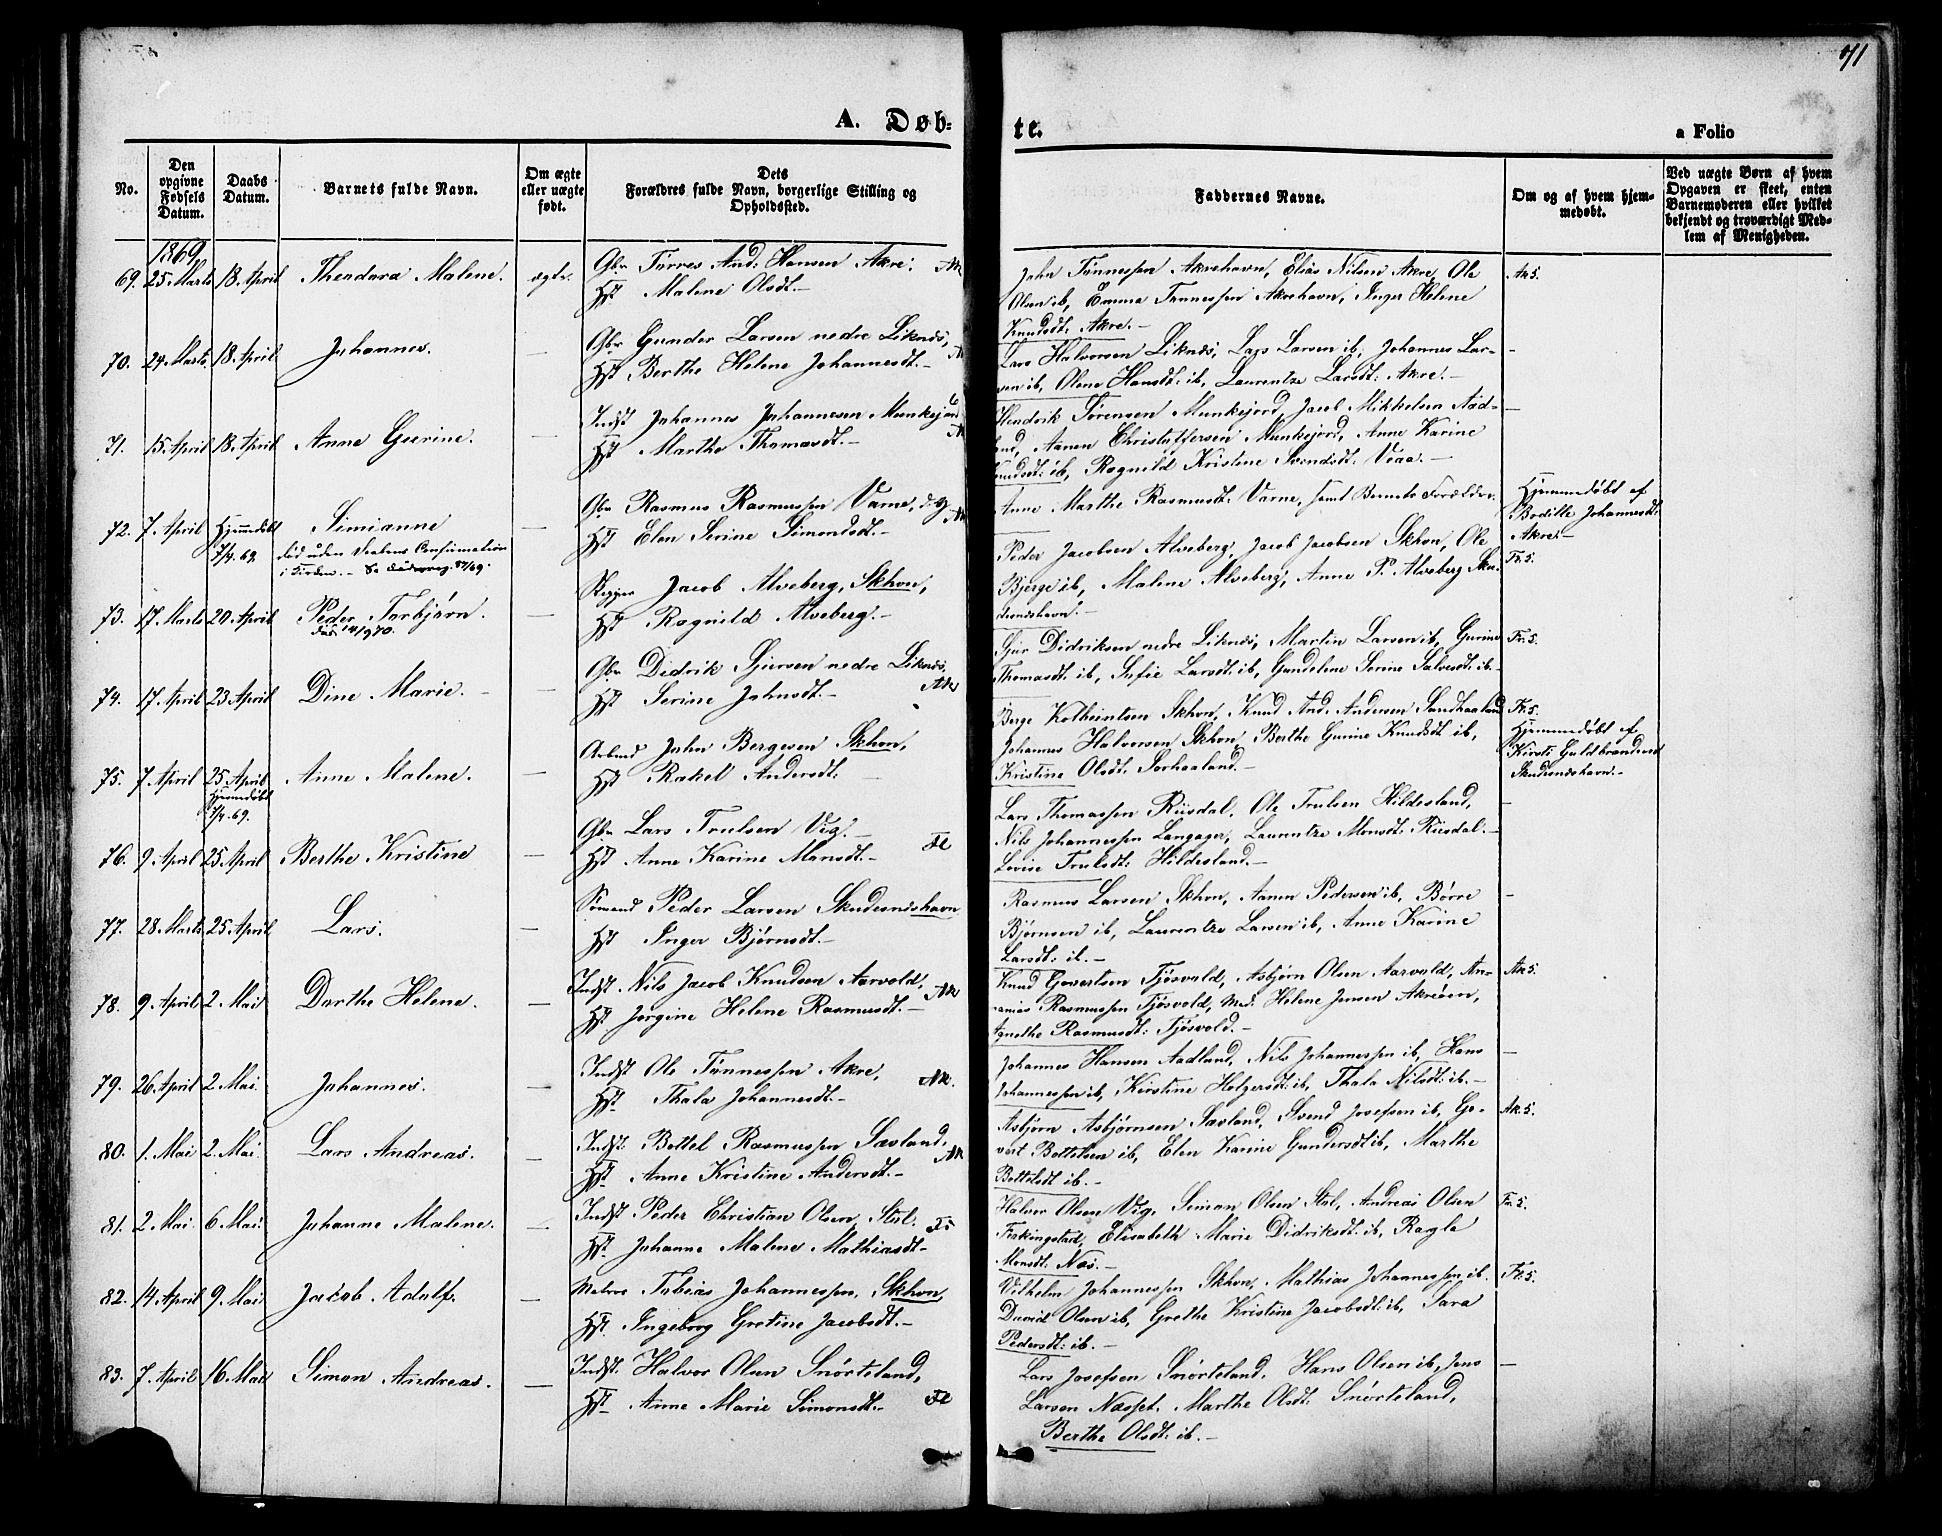 71
A. Døb-
te.
a Folio
No.
Den opgivne Fødsels Datum.
Daabs Datum.
Barnets fulde Navn.
Om ægte eller uægte født.
Dets Forældres fulde Navn, borgerlige Stilling og Opholdssted.
Faddernes Navne.
Om og af hvem hjem-medøbt.
Ved uægte Børn af hvem Opgaven er skeet, enten Barnemoderen eller hvilket bekjendt og troværdigt Med-lem af Menigheden.
1869
69. 25 Marts 18 April Theodora Malene. ægte. Gbr Tørres And: Hansen Akre, Ak
Hst Malene Olsdt.-
John Tønnessen Akrehavn, Elias Nilsen Akre, Ole Ak5.
Olsen ib, Emma Tønnessen Akrehavn, Inger Helene
Knudsdt: Akre.-
70. 24 Marts 18 April Johannes. — Gbr Gunder Larsen nedre Liknes,
Hst Berthe Helene Johannesdt.-
Lars Halvorsen Liknes, Lars Larsen ib, Johannes Lar- -
sen ib, Olene Hansdt: ib, Laurentze Larsdt: Akre.-
71. 15 April 18 April Anne Gurine. — Indst Johannes Johannesen Munkejord
Hst Marthe Thomasdt.-
Hendrik Sørensen Munkejord, Jacob Mikkelsen Aad- -
land, Aanen Christoffersen Munkejord, Anne Karine
Knudsdt: ib, Ragnild Kristine Svendsdt: Veaa.-
72. 7. April Hjemmedøbt 7/4.69. Simianne — Gbr Rasmus Rasmussen Varne,
død uden Daabens Confirmation
i Kirken.-
Hst Elen Serine Simonsdt.-
Anne Marthe Rasmusdt: Varne, samt Barnets Forældre. Hjemmedøbt af
Bodille Johannesdt:
Akre.-
73. 17. Marts 20 April Peder Torbjørn. — Jacob Alveberg, Skhvn,
Hst Ragnild Alveberg.-
Peder Jacobsen Alveberg, Jacob Jacobsen Skhvn, Ole Fr.5.
Bjerge ib, Malene Alveberg, Anne P. Alveberg Sku-
desneshavn.-
74. 17. April 23 April Dine Marie. — Gbr Didrik Sjursen nedre Liknes,
Hst Serine Johnsdt.-
Sjur Didriksen nedre Liknes, Martin Larsen ib, Gurine Fr.5.
Thomasdt: ib, Sofie Larsdt: ib, Gundeline Serine Salvesdt: ib.-
75. 7. April 25 April Hjemmedøbt 7/4.69. Anne Malene. — Arbmd John Bergesen Skhvn,
Hst Rakel Andersdt:
Berge Kolbeintsen Skhvn, Knud And: Andersen Sandhaaland Fr.5.
Johannes Halvorsen Skhvn, Berthe Gurine Knudsdt ib, Hjemmedøbt af
Kristine Olsdt: Sorhaaland.- Kirsti Guldbrandsen
Skudesneshavn.-
76. 9. April 25 April Berthe Kristine — Gbr Lars Trulsen Vig.- Fe
Hst Anne Karine Monsdt.-
Lars Thomassen Riisdal, Ole Trulsen Hildesland, -
Nils Johannessen Langager, Laurentze Monsdt: Riisdal.-
Lovise Trulsdt: Hildesland.-
77. 28. Marts 25 April Lars. — Sømand Peder Larsen Skudesneshavn
Hst Inger Bjørnsdt.-
Rasmus Larsen Skhvn, Aanen Pedersen ib, Børre -
Bjørnsen ib, Laurentze Larsen ib, Anne Karine
Larsdt: ib.-
78. 9. April 2. Mai Dorthe Helene. — Indst. Nils Jacob Knudsen Aarvold, Ak
Hst Jorgine Helene Rasmusdt.-
Knud Govertsen Tjøsvold, Asbjørn Olsen Aarvold, An- Ak5.
anias Rasmussen Tjøsvold, Mad. Helene Jensen Akrøen,
Agnethe Rasmusdt: Tjøsvold.-
79. 26. April 2. Mai. Johannes. — Indst Ole Tønnessen Akre, Ak.
Hst Thala Johannesdt.-
Johannes Hansen Aadland, Nils Johannessen ib, Hans -
Johannessen ib, Kirstine Holgersdt: ib, Thala Nilsdt: ib.-
80. 1. Mai 2. Mai. Lars Andreas. — Indst: Bottel Rasmussen Sævland, Ak
Hst Anne Kristine Andersdt.-
Asbjørn Asbjørnsen Sævland, Svend Josefsen ib, Go- Ak5.
vert Bottelsen ib, Elen Karine Gundersdt ib, Marthe
Botteldt ib.-
81. 2. Mai. 6. Mai. Johanne Malene. — Indst Peder Christian Olsen Stol.
Hst Johanne Malene Mathiasdt-
Halvor Olsen Vig, Simon Olsen Stol, Andreas Olsen Fr.5.
Ferkingstad, Elisabeth Marie Didriksdt: ib, Ragla
Monsdt: Næs.-
82. 14 April 9. Mai Jacob Adolf. — Tobias Johannessen, Skhvn
Hst. Ingeborg Gretine Jacobsdt.-
Vilhelm Johannessen Skhvn, Mathias Johannessen ib. Fr.5.
David Olsen ib, Grethe Kristine Jacobsdt: ib, Sara
Pedersdt: ib.-
83. 7. April 16. Mai Simon Andreas. — Indst. Halvor Olsen Snørteland,
Hst. Anne Marie Simonsdt.- Fe
Lars Josefsen Snørteland, Hans Olsen ib, Jens -
Larsen Næsset, Marthe Olsdt: Snørteland,
Berthe Olsdt: ib.-